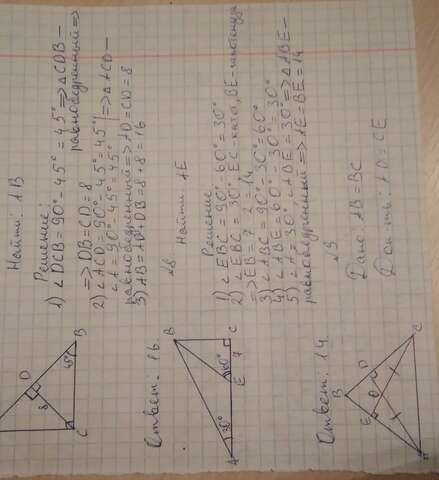 Найти: AB
Решение:
1) ∠DCB = 90° - 45° = 45° => △CDB —
равнобедренный =>
=> DB = CD = 8
2) ∠ACD = 90° - 45° = 45°
∠A = 90° - 45° = 45° | => △ACD —
равнобедренный => AD = CD = 8
3) AB = AD + DB = 8 + 8 = 16
D
8
45°
C
B
Ответ: 16
№8
Найти AE
Решение
1) ∠EBC = 90° - 60° = 30°
2) ∠EBC = 30°, EC - катет, BE - гипотенуза
=> EB = 7 · 2 = 14
3) ∠ABC = 90° - 30° = 60°
4) ∠ABE = 60° - 30° = 30°
5) ∠A = 30° = ∠ABE = 30° => △ABE —
равнобедренный => AE = BE = 14
B
A
30°
E
60°
7
C
Ответ: 14
Дано: AB = BC
Док-ть: AD = CE
B
E
D
O
C